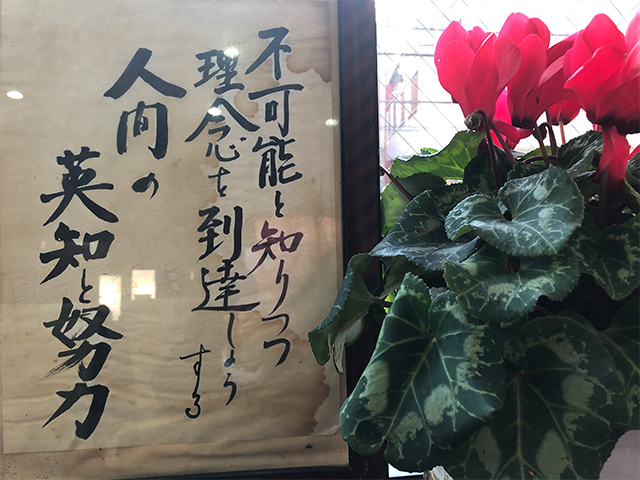 不可能と知りつつ
理念を到達しようする
人間の
英知と努力